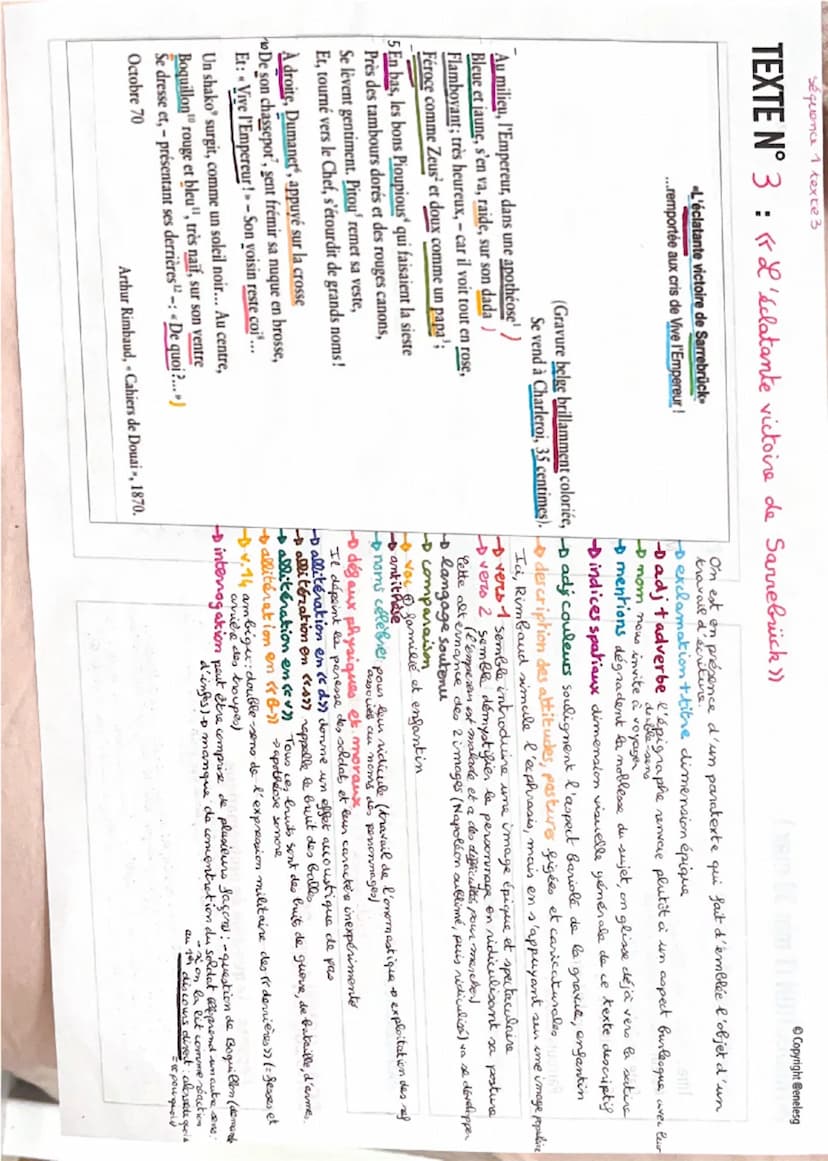 séquence 1 texte 3
TEXTE N° 3 : « L'éclatante victoire de Sarrebrück »
© Copyright @enelesg
«L'éclatante victoire de Sarrebrück»
...remportée aux cris de Vive l'Empereur !
(Gravure belge brillamment coloriée,
Se vend à Charleroi, 35 centimes).
Au milieu, l'Empereur, dans une apothéose¹
Bleue et jaune, s'en va, raide, sur son dada
Flamboyant ; très heureux, – car il voit tout en rose,
Féroce comme Zeus² et doux comme un papa³ ;
5 En bas, les bons Pioupious⁴ qui faisaient la sieste
Près des tambours dorés et des rouges canons,
Se lèvent gentiment. Pitou⁵ remet sa veste,
Et, tourné vers le Chef, s'étourdit de grands noms !
À droite, Dumanet⁶, appuyé sur la crosse
10 De son chassepot⁷, sent frémir sa nuque en brosse,
Et : « Vive l'Empereur ! » – Son voisin reste coi⁸...
Un shako⁹ surgit, comme un soleil noir... Au centre,
Boquillon¹⁰ rouge et bleu¹¹, très naïf, sur son ventre
Se dresse et, – présentant ses derrières¹² – : « De quoi ?... »
Octobre 70
Arthur Rimbaud, « Cahiers de Douai », 1870.
On est en présence d'un paratexte qui fait d'emblée l'objet d'un
travail d'écriture
→ exclamation + titre dimension épique
→ adj + adverbe l'épigraphe renvoie plutôt à un aspect burlesque avec leur
double sens
→ nom nous invite à voyager
→ mentions dégradent la noblesse du sujet, on glisse déjà vers la satire
→ indices spatiaux dimension visuelle générale de ce texte descriptif
→ adj couleurs soulignent l'aspect bariolé de la gravure, enfantin
→ description des attitudes, posture figées et caricaturales
Ici, Rimbaud simule l'ecphrasis, mais en s'appuyant sur une image populaire
→ vers 1 semble introduire une image épique et spectaculaire
→ vers 2 semble démystifier le personnage en ridiculisant sa posture
(l'empereur est malade et a des difficultés pour marcher)
Cette alternance des 2 images (Napoléon sublimé, puis ridiculisé) va se développer
→ langage soutenu
→ comparaison
→ voc familié et enfantin
→ antithèse
→ noms célèbres pour leur ridicule (travail de l'onomastique → exploitation des
associés au noms des personnages)
→ dégaux physiques et moraux
Il dépeint la paresse des soldat, et leur caractère inexpérimenté
→ allitération en « d » donne un effet accoustique de pas
→ allitération en « s » rappelle le bruit des balles
→ allitération en « v » Tous ces bruits sont des bruit de guerre, de bataille, d'arme.
→ allitération en → apothéose sonore
→ v.14 ambigu : double sens de l'expression militaire des « derrières » (= fesses et
arrière des troupes)
→ interrogation peut être comprise de plusieurs façons : - question de Boquillon
→ manque de concentration du soldat
- si on la lit comme réaction
au discours direct